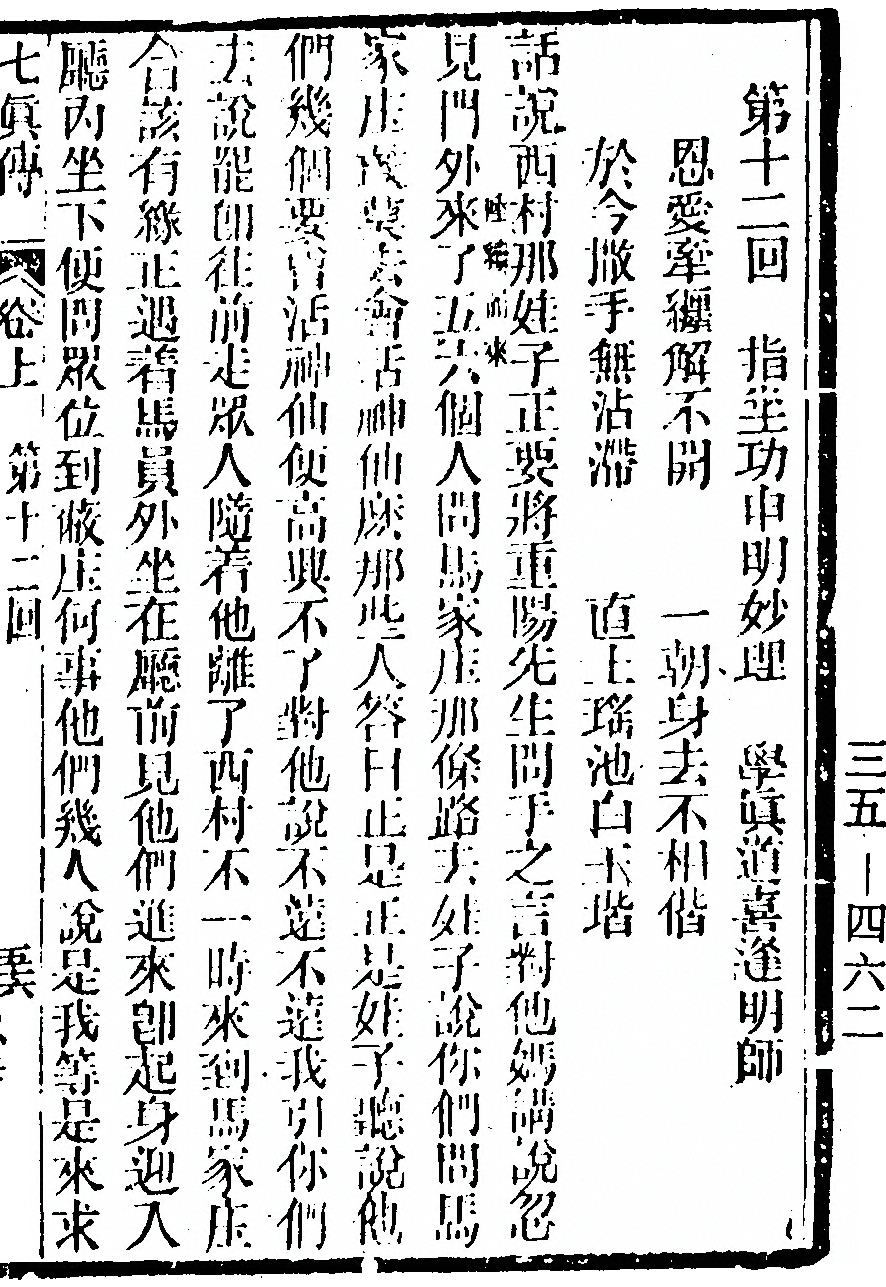 第十二回 指坐功申明妙理 學眞道喜逢明師
恩愛牽纏解不開 一朝身去不相偕
於今撒手無沾滯 直上瑤池白玉堦
話說西村那娃子正要將重陽先生問手之言對他媽講說忽
見門外來了五六個人問馬家庄那條路去娃子說你們問馬
家庄 去會活神仙庶那些人答曰正是正是娃子聽說他
們幾個要會活神仙便高興不了對他說不遠不遠我引你們
去說罷卽往前走眾人隨着他離了西村不一時來到馬家庄
合該有緣正遇着馬員外坐在廳前見他們進來卽起身迎入
廳內坐下便問眾位到敝庄何事他們幾人說是我等是來求
七眞傳 卷上 第十二回
三五－四六二